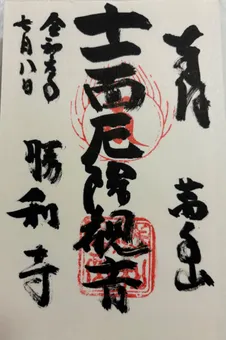 奉拝
萬年山
十一面厄除観音
令和五年
七月八日
勝利寺